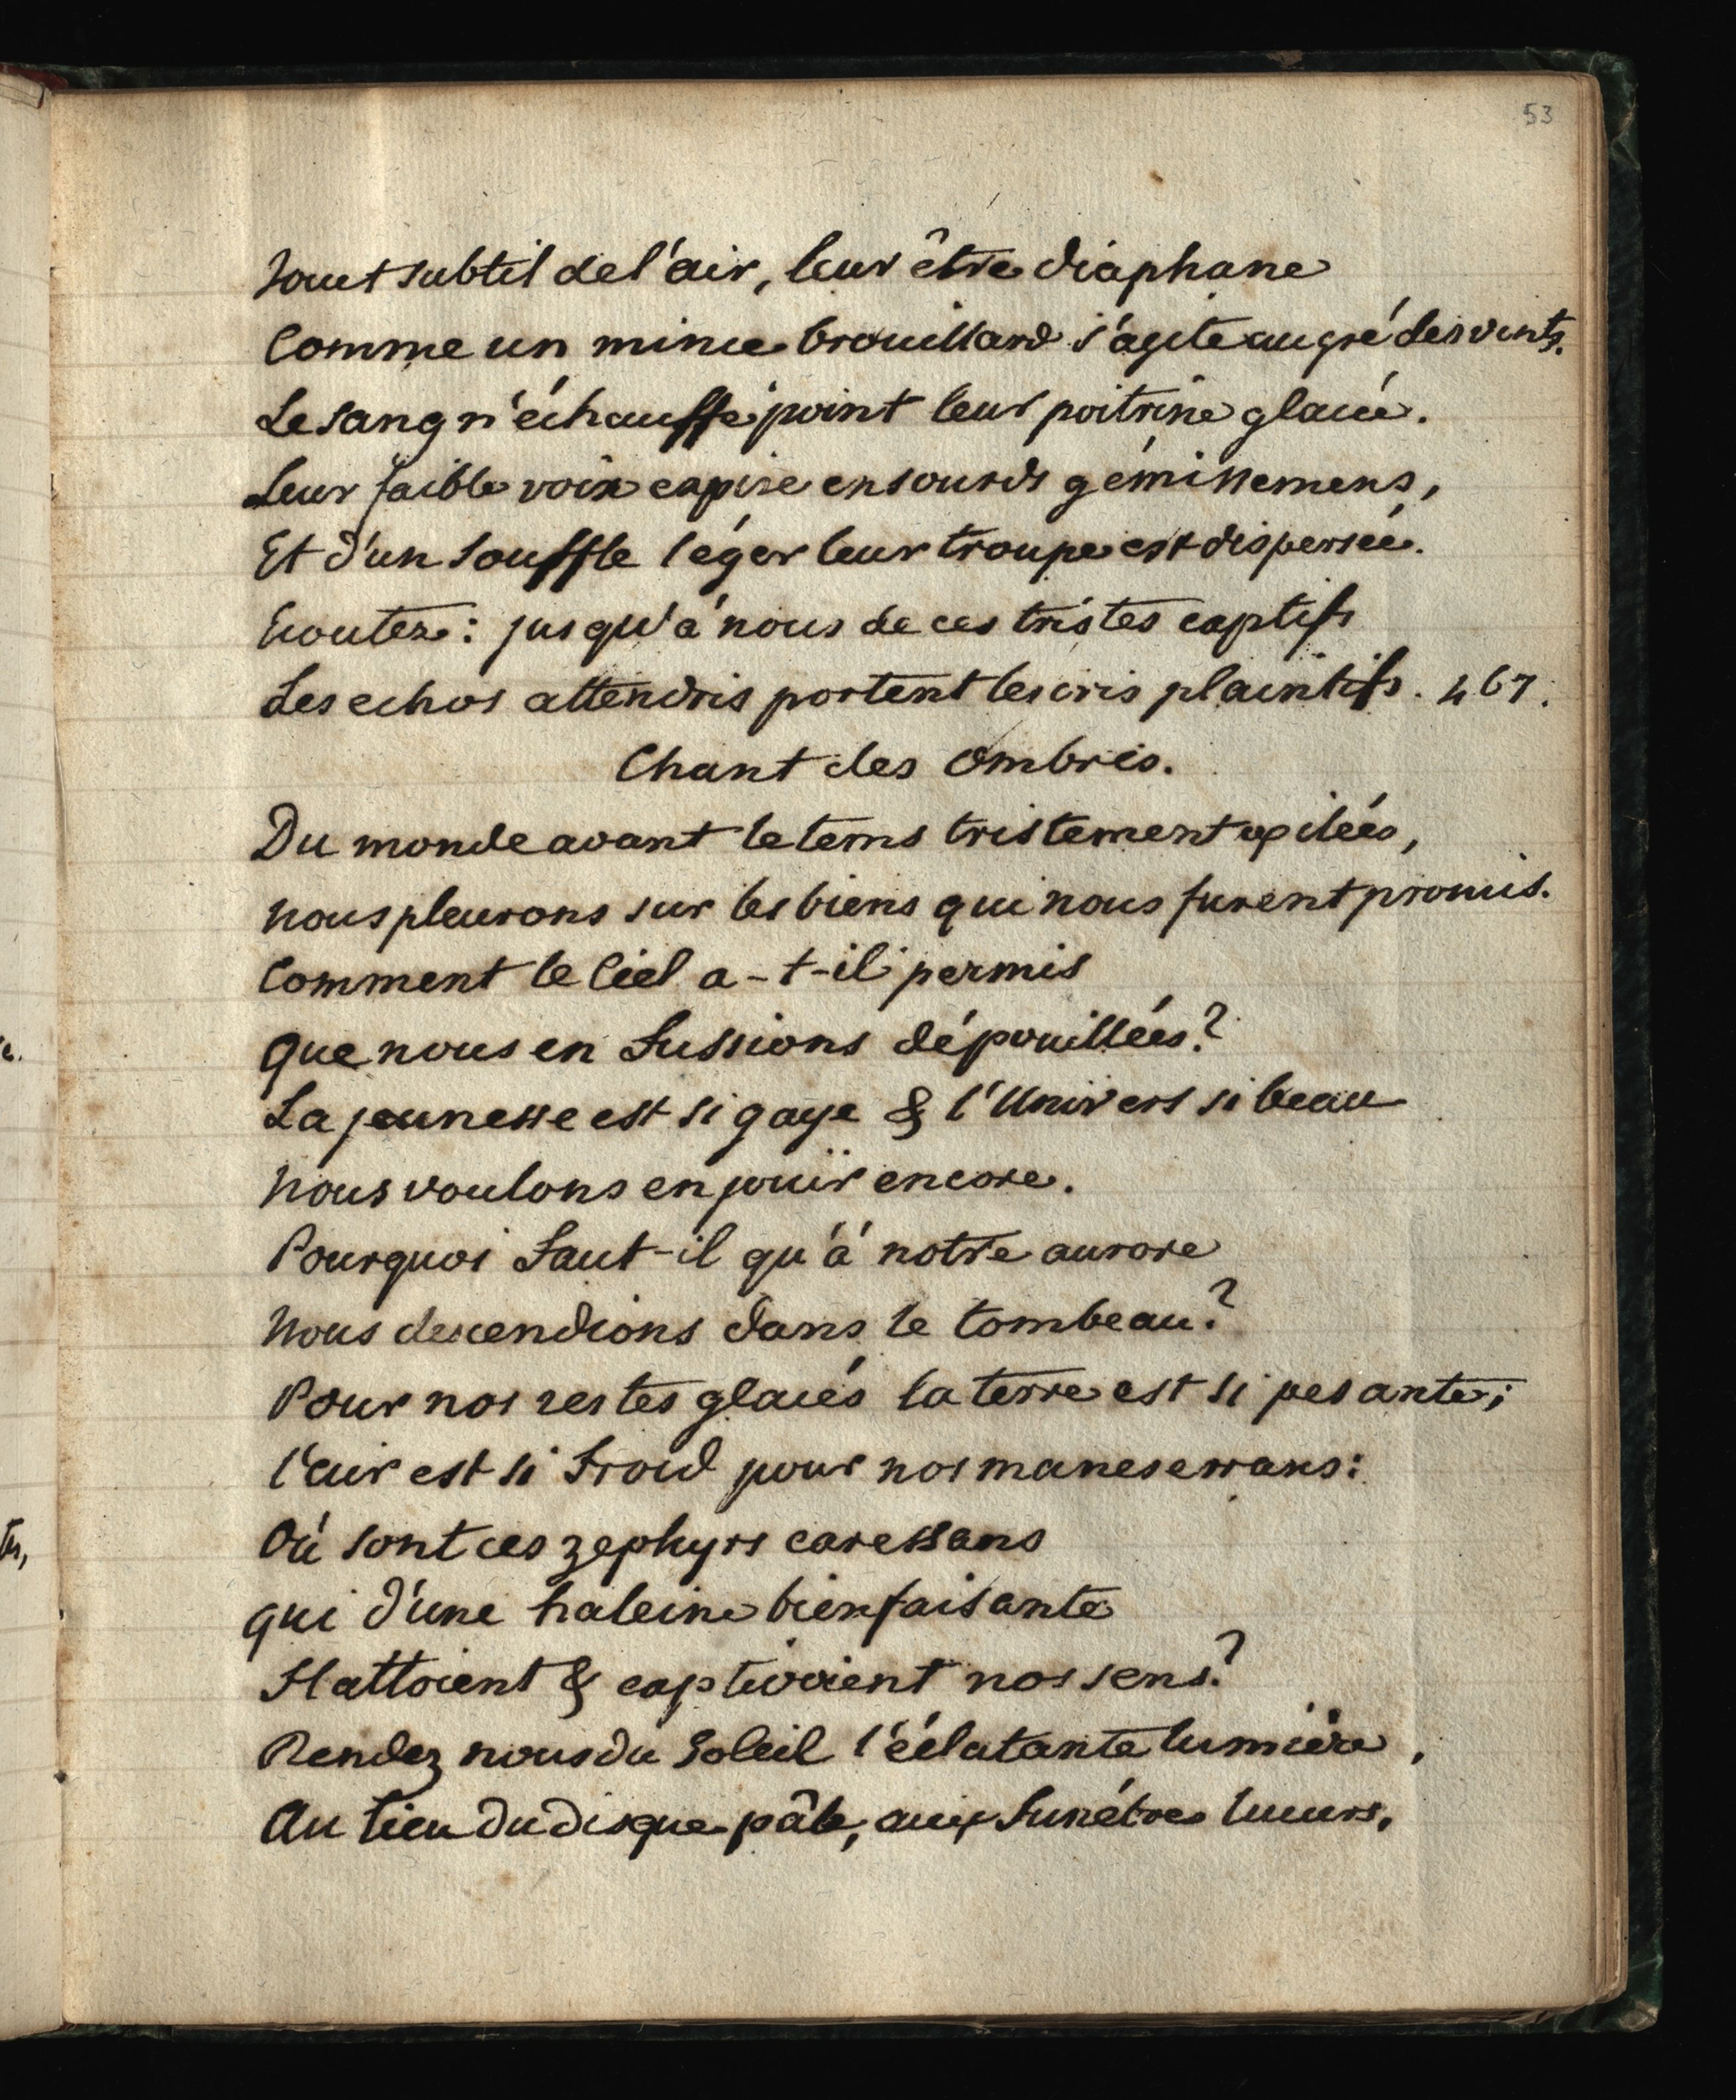 53
Jouet subtil de l'air, leur être diaphane
Comme un mince brouillard s'agite au gré des vents.
Le sang n'échauffe point leur poitrine glacée.
Leur faible voix expire en sourds gémissemens,
Et d'un souffle léger leur troupe est dispersée.
Ecoutez : jusqu'à nous de ces tristes captifs
Les echos attendris portent les cris plaintifs. 467.
Chant des Ombres.
Du monde avant le tems tristement exilées,
Nous pleurons sur les biens qui nous furent promis.
Comment le Ciel a-t-il permis
Que nous en fussions dépouillées?
La jeunesse est si gaye & l'Univers si beau
Nous voulons en jouïr encore.
Pourquoi faut-il qu'à notre aurore
Nous descendions dans le tombeau?
Pour nos restes glacés la terre est si pesante;
l'air est si froid pour nos manes errans:
Où sont ces zephyrs caressans
qui d'une haleine bienfaisante
Flattoient & captivoient nos sens?
Rendez nous du Soleil l'éclatante lumière,
Au lieu du disque pâle, aux funébres lueurs,
e.